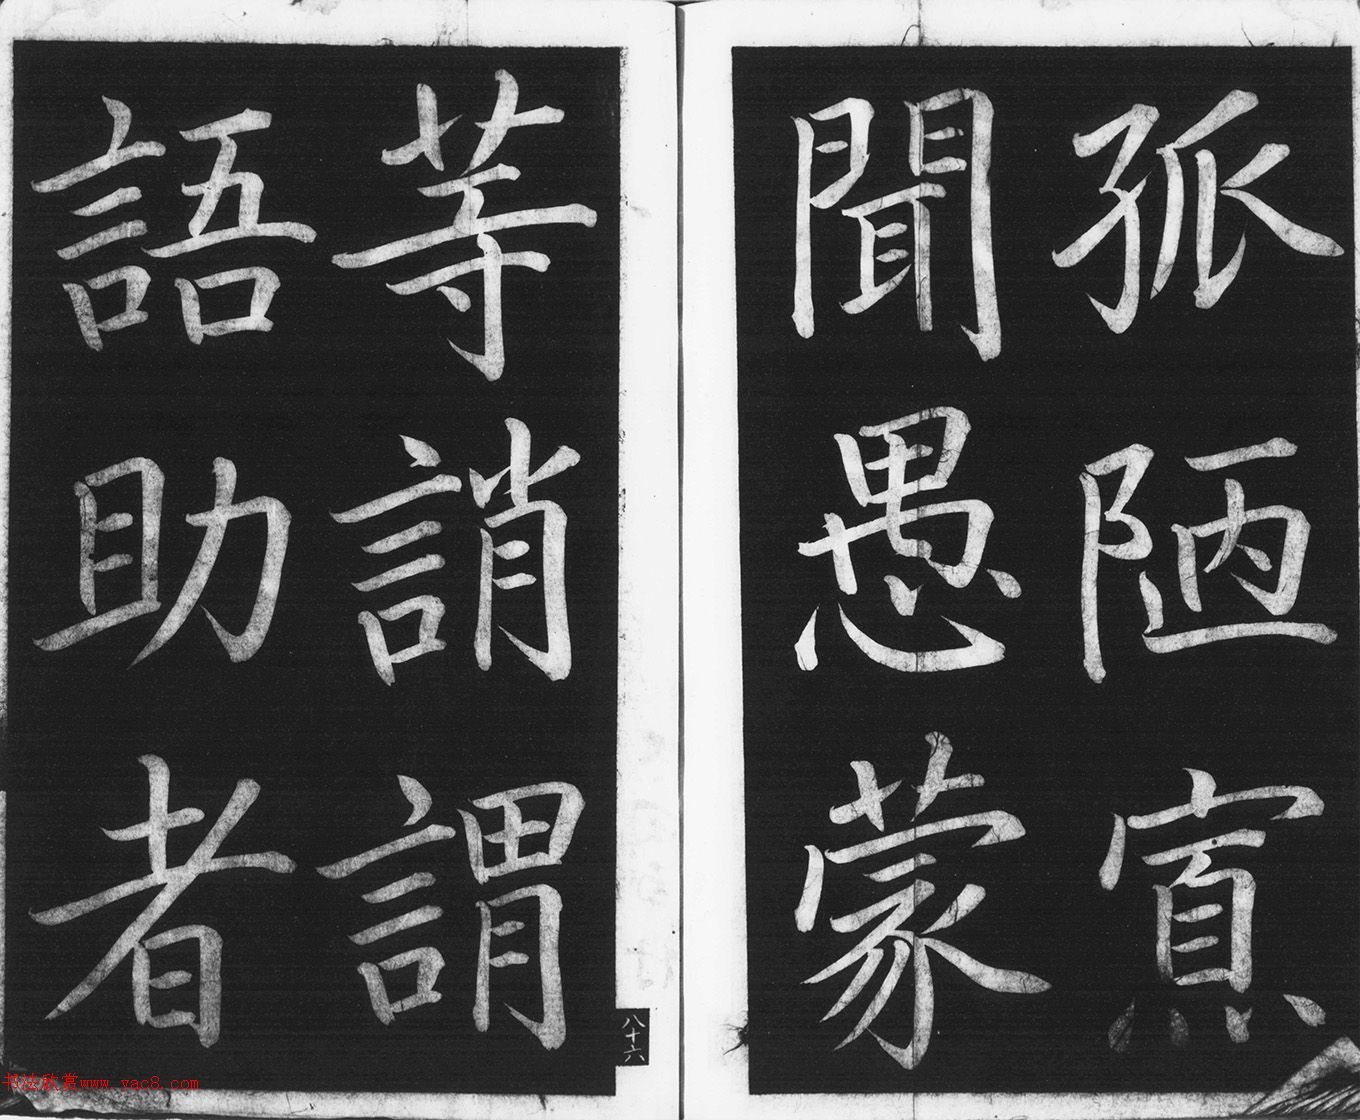 孤陋寡
聞愚蒙
等誚謂
語助者
八十六
书法欣赏www.yac8.com